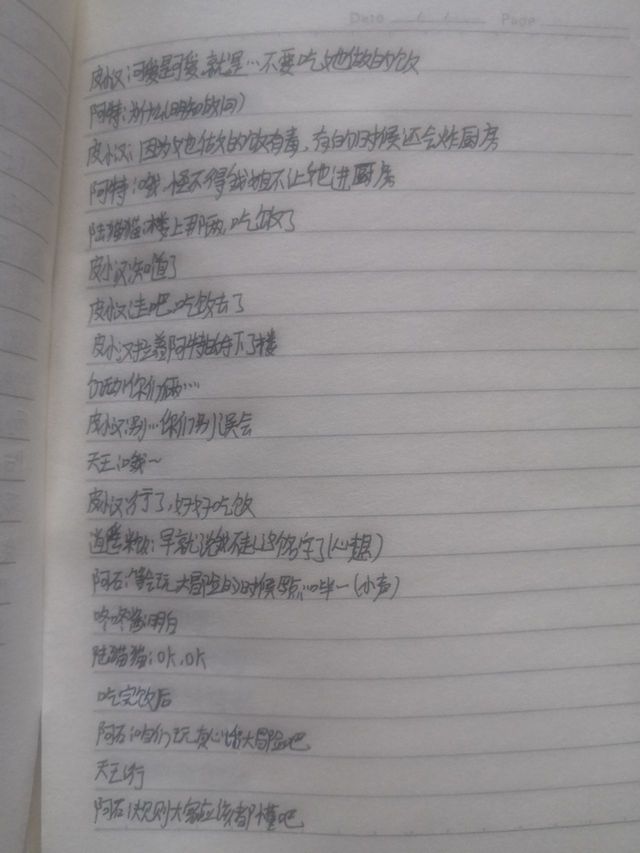 Date Page
皮小汉:可爱是可爱,就是…不要吃她做的饭
阿特:为什么(明知故问)
皮小汉:因为她做的饭有毒,有的时候还会炸厨房
阿特:哦,怪不得我姐不让他进厨房
陆猫猫:楼上那俩,吃饭了
皮小汉:知道了
皮小汉:走吧,吃饭去了
皮小汉拉着阿特的手下了楼
你们俩…
皮小汉:别…你们别误会
天王:哦~
皮小汉:行了,好好吃饭
早就说我不起这个名字了(心想)
阿石:等会玩大冒险的时候(小声)
咚咚:明白
陆猫猫:ok,ok
吃完饭后
阿石:咱们玩真心话大冒险吧
天王:行
阿石:规则大家应该都懂吧